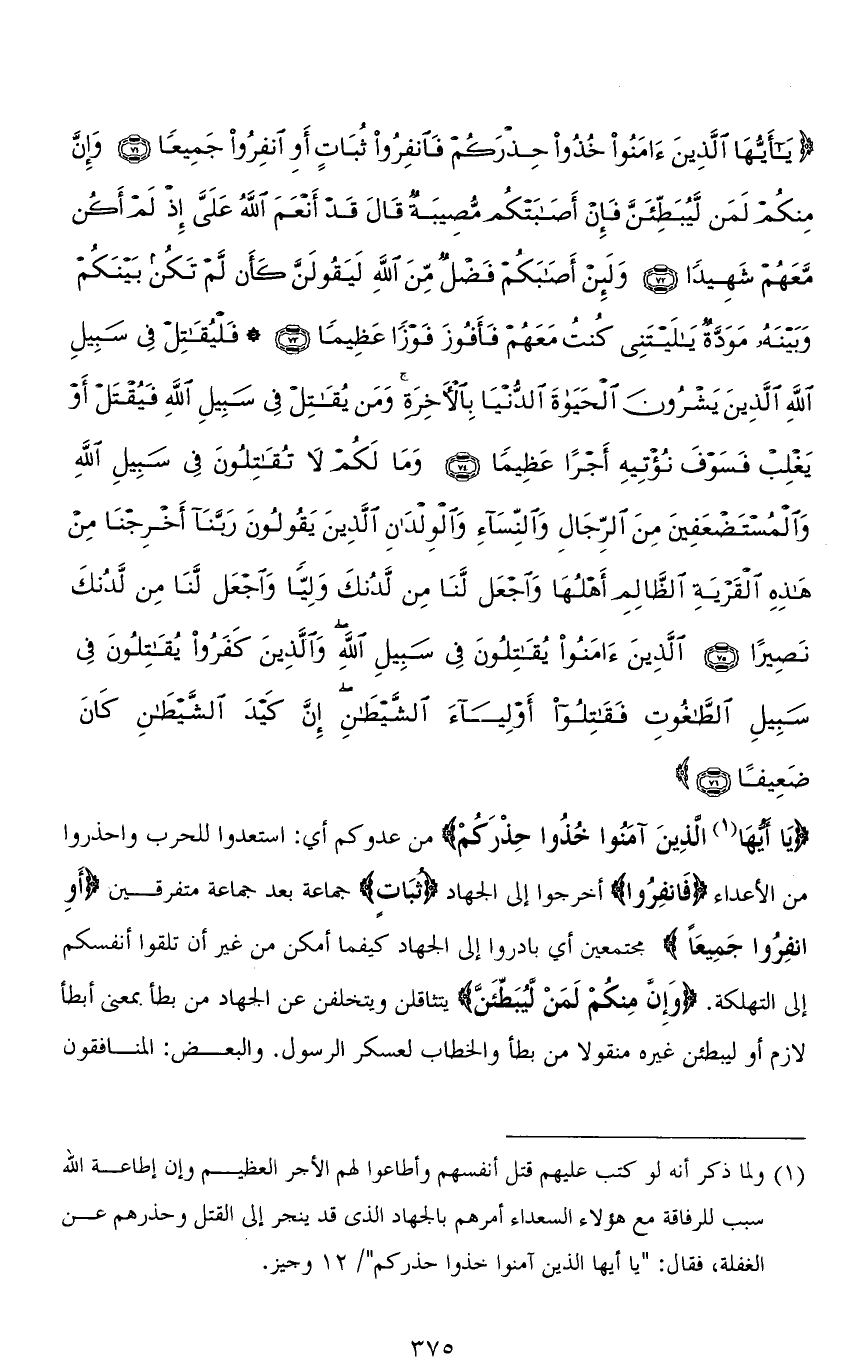 ﴿ يَـٰٓأَيُّهَا ٱلَّذِينَ ءَامَنُوا۟ خُذُوا۟ حِذْرَكُمْ فَٱنفِرُوا۟ ثُبَاتٍ أَوِ ٱنفِرُوا۟ جَمِيعًا ٧١ وَإِنَّ
مِنكُمْ لَمَن لَّيُبَطِّئَنَّ فَإِنْ أَصَـٰبَتْكُم مُّصِيبَةٌ قَالَ قَدْ أَنْعَمَ ٱللَّهُ عَلَىَّ إِذْ لَمْ أَكُن
مَّعَهُمْ شَهِيدًا ٧٢ وَلَئِنْ أَصَـٰبَكُمْ فَضْلٌ مِّنَ ٱللَّهِ لَيَقُولَنَّ كَأَن لَّمْ تَكُنۢ بَيْنَكُمْ
وَبَيْنَهُۥ مَوَدَّةٌ يَـٰلَيْتَنِى كُنتُ مَعَهُمْ فَأَفُوزَ فَوْزًا عَظِيمًا ٧٣ * فَلْيُقَـٰتِلْ فِى سَبِيلِ
ٱللَّهِ ٱلَّذِينَ يَشْرُونَ ٱلْحَيَوٰةَ ٱلدُّنْيَا بِٱلْـَٔاخِرَةِ ۚ وَمَن يُقَـٰتِلْ فِى سَبِيلِ ٱللَّهِ فَيُقْتَلْ أَوْ
يَغْلِبْ فَسَوْفَ نُؤْتِيهِ أَجْرًا عَظِيمًا ٧٤ وَمَا لَكُمْ لَا تُقَـٰتِلُونَ فِى سَبِيلِ ٱللَّهِ
وَٱلْمُسْتَضْعَفِينَ مِنَ ٱلرِّجَالِ وَٱلنِّسَآءِ وَٱلْوِلْدَٰنِ ٱلَّذِينَ يَقُولُونَ رَبَّنَآ أَخْرِجْنَا مِنْ
هَـٰذِهِ ٱلْقَرْيَةِ ٱلظَّالِمِ أَهْلُهَا وَٱجْعَل لَّنَا مِن لَّدُنكَ وَلِيًّا وَٱجْعَل لَّنَا مِن لَّدُنكَ
نَصِيرًا ٧٥ ٱلَّذِينَ ءَامَنُوا۟ يُقَـٰتِلُونَ فِى سَبِيلِ ٱللَّهِ ۖ وَٱلَّذِينَ كَفَرُوا۟ يُقَـٰتِلُونَ فِى
سَبِيلِ ٱلطَّـٰغُوتِ فَقَـٰتِلُوٓا۟ أَوْلِيَآءَ ٱلشَّيْطَـٰنِ ۖ إِنَّ كَيْدَ ٱلشَّيْطَـٰنِ كَانَ
ضَعِيفًا ٧٦ ﴾
﴿يَا أَيُّهَا(١) الَّذِينَ آمَنُوا خُذُوا حِذْرَكُمْ﴾ من عدوكم أي: استعدوا للحرب واحذروا
من الأعداء ﴿فَانفِرُوا﴾ أخرجوا إلى الجهاد ﴿ثُبَاتٍ﴾ جماعة بعد جماعة متفرقين ﴿أَوِ
انفِرُوا جَمِيعَاً ﴾ مجتمعين أي بادروا إلى الجهاد كيفما أمكن من غير أن تلقوا أنفسكم
إلى التهلكة. ﴿وَإِنَّ مِنكُمْ لَمَنْ لَّيُبَطِّئَنَّ﴾ يتثاقلن ويتخلفن عن الجهاد من بطأ بمعنى أبطأ
لازم أو ليبطئن غيره منقولا من بطأ والخطاب لعسكر الرسول. والبعض: المنافقون
(١) ولما ذكر أنه لو كتب عليهم قتل أنفسهم وأطاعوا لهم الأجر العظيم وإن إطاعة الله
سبب للرفاقة مع هؤلاء السعداء أمرهم بالجهاد الذى قد ينجر إلى القتل وحذرهم عن
الغفلة، فقال: "يا أيها الذين آمنوا خذوا حذركم"/ ١٢ وجيز.
٣٧٥